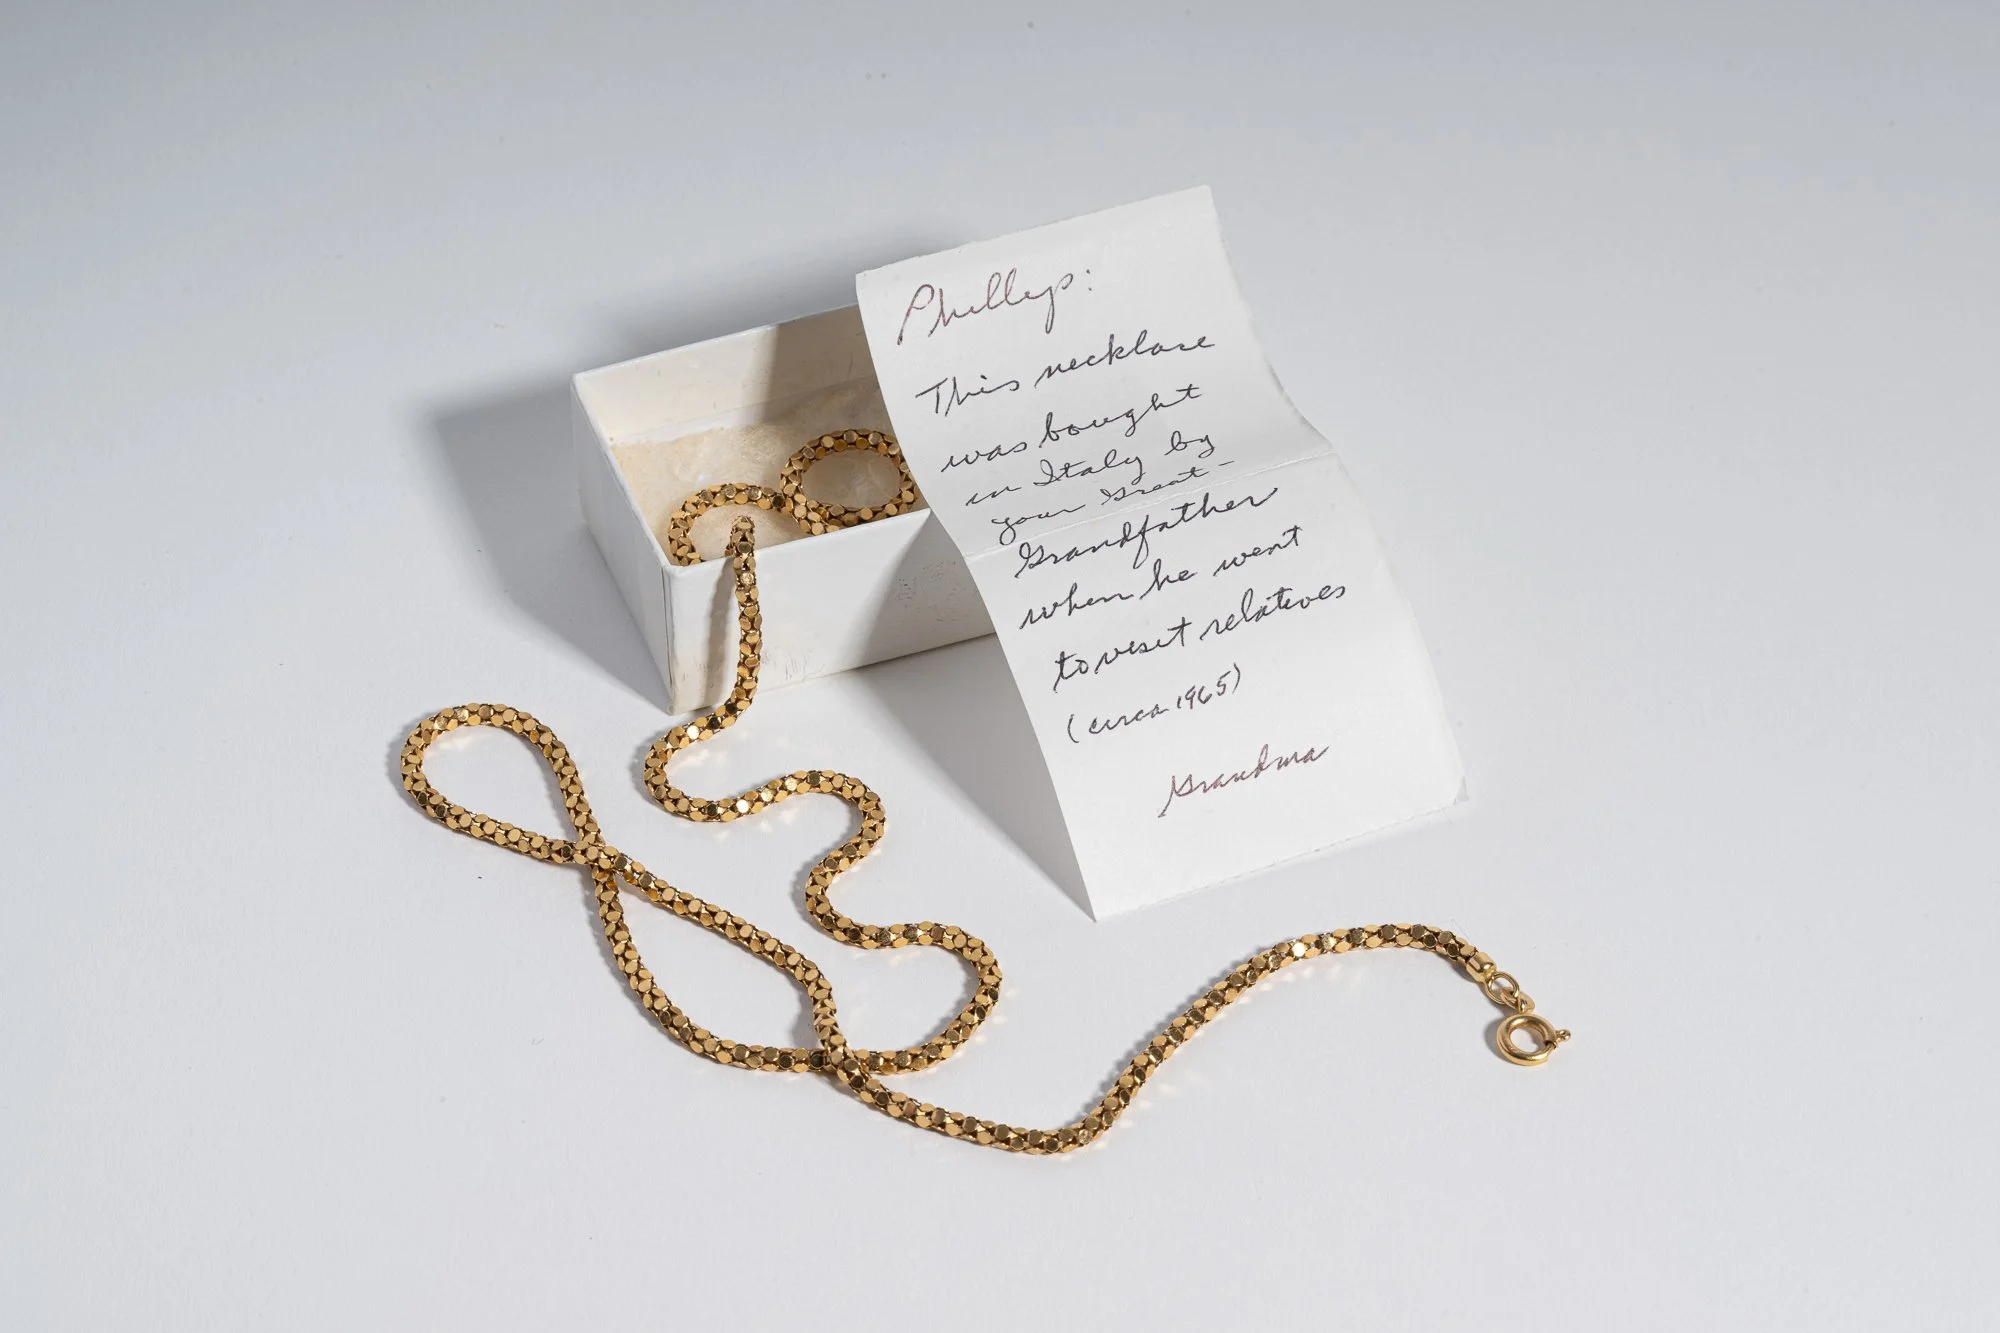 Phillip:
This necklace
was bought
in Italy by
your Great-
Grandfather
when he went
to visit relatives
(circa 1965)
Grandma